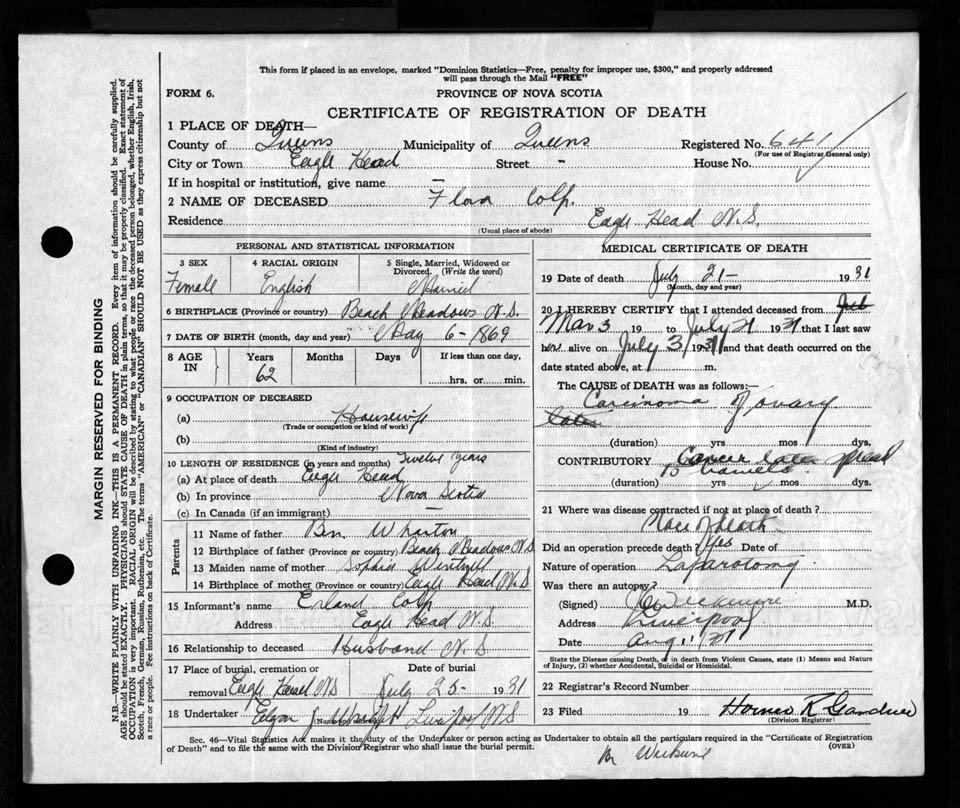 This form if placed in an envelope, marked "Dominion Statistics—Free, penalty for improper use, $300," and properly addressed
will pass through the Mail "FREE"
FORM 6.
PROVINCE OF NOVA SCOTIA
CERTIFICATE OF REGISTRATION OF DEATH
1 PLACE OF DEATH—
County of Queens Municipality of Queens Registered No. 641
(For use of Registrar General only)
City or Town Eagle Head Street - House No.
If in hospital or institution, give name –
2 NAME OF DECEASED Flora Colp.
Residence Eagle Head N.S.
(Usual place of abode)
PERSONAL AND STATISTICAL INFORMATION
3 SEX 4 RACIAL ORIGIN 5 Single, Married, Widowed or Divorced. (Write the word)
Female English Married
6 BIRTHPLACE (Province or country) Beach Meadows N.S.
7 DATE OF BIRTH (month, day and year) May 6-1869
8 AGE IN Years Months Days If less than one day,
62 hrs. or min.
9 OCCUPATION OF DECEASED
(a) Housewife
(Trade or occupation or kind of work)
(b)
(Kind of industry)
10 LENGTH OF RESIDENCE (in years and months) Twelve Years
(a) At place of death Eagle Head
(b) In province Nova Scotia
(c) In Canada (if an immigrant) —
Parents
11 Name of father Ben. Wharton
12 Birthplace of father (Province or country) Beach Meadows N.S
13 Maiden name of mother Sophia Wentzell
14 Birthplace of mother (Province or country) Eagle Head N.S
15 Informant's name Erland Colp
Address Eagle Head N.S.
16 Relationship to deceased Husband N.S
17 Place of burial, cremation or removal Eagle Head NS
Date of burial July 25- 1931
18 Undertaker Edgar J Wright Liverpool NS
MEDICAL CERTIFICATE OF DEATH
19 Date of death July 21- 1931
(Month, day and year)
20 I HEREBY CERTIFY that I attended deceased from
Mar 3 19 to July 21 1931 that I last saw
her alive on July 3 1931 and that death occurred on the
date stated above, at m.
The CAUSE OF DEATH was as follows:—
Carcinoma of ovary
(duration) yrs mos dys.
CONTRIBUTORY Cancer spread
to
(duration) yrs mos dys.
21 Where was disease contracted if not at place of death?
Place of death
Did an operation precede death? Yes Date of
Nature of operation Laparotomy
Was there an autopsy?
(Signed) M.D.
Address Liverpool
Date Aug 1 '31
State the Disease causing Death, or in death from Violent Causes, state (1) Means and Nature
of Injury, (2) whether Accidental, Suicidal or Homicidal.
22 Registrar's Record Number
23 Filed 19 Homer R Gardner
(Division Registrar)
Sec. 46—Vital Statistics Act makes it the duty of the Undertaker or person acting as Undertaker to obtain all the particulars required in the "Certificate of Registration
of Death" and to file the same with the Division Registrar who shall issue the burial permit.
(OVER)
MARGIN RESERVED FOR BINDING
N.B.—WRITE PLAINLY WITH UNFADING INK—THIS IS A PERMANENT RECORD. Every item of information should be carefully supplied.
AGE should be stated EXACTLY. PHYSICIANS should STATE CAUSE OF DEATH in plain terms, so that it may be properly classified. Exact statement of
OCCUPATION is very important. RACIAL ORIGIN will be described by stating to what people or race the deceased person belonged, whether English, Irish,
Scotch, French, German, Russian, Ruthenian, etc. The terms "AMERICAN" or "CANADIAN" SHOULD NOT BE USED as they express citizenship but not
a race or people. See instructions on back of Certificate.